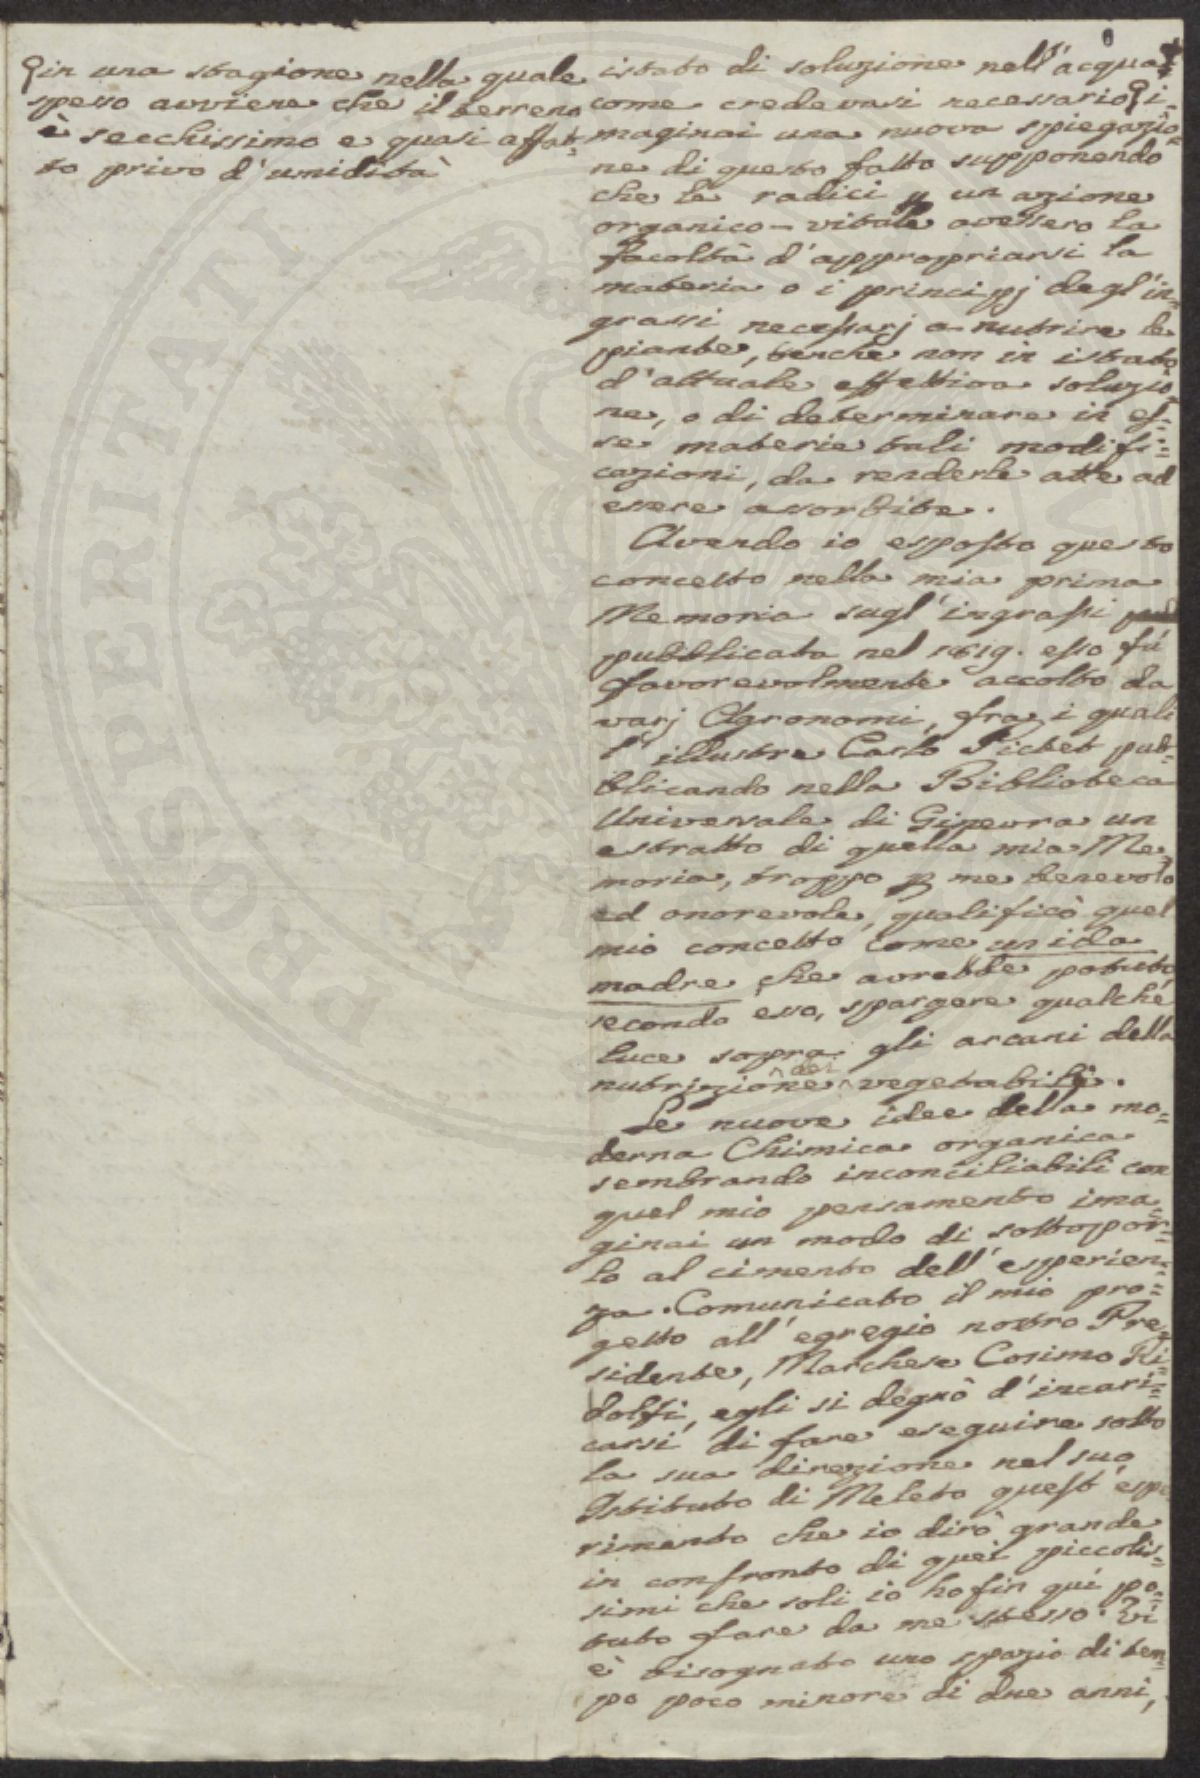 in una stagione nella quale
spesso avviene che il terreno
è secchissimo e quasi affat-
to privo d'umidità
istato di soluzione nell'acqua
come credevasi necessario i-
maginai una nuova spiegazio-
ne di questo fatto supponendo
che le radici p un azione
organico-vitale avessero la
facoltà d'appropriarsi la
materia o i principj degl'in-
grassi necessarj a nutrire le
piante, benche non in istato
d'attuale effettiva soluzio-
ne, o di determinare in es-
se materie tali modifi-
cazioni, da renderle atte ad
essere assorbite.
Avendo io esposto questo
concetto nella mia prima
Memoria sugl'ingrassi
pubblicata nel 1819. esso fú
favorevolmente accolto da
varj Agronomi, fra i quali
l'illustre Carlo Pictet pub-
blicando nella Biblioteca
Universale di Ginevra un
estratto di quella mia Me-
moria, troppo p me benevolo
ed onorevole, qualificò quel
mio concetto come un idea
madre che avrebbe potuto
secondo esso, spargere qualche
luce sopra gli arcani della
nutrizione dei vegetabili.
Le nuove idee della mo-
derna Chimica organica
sembrando inconciliabili con
quel mio pensamento ima-
ginai un modo di sottopor-
lo al cimento dell'esperien-
za. Comunicato il mio pro-
getto all'egregio nostro Pre-
sidente, Marchese Cosimo Ri-
dolfi, egli si degnò d'incari-
carsi di fare eseguire sotto
la sua direzione nel suo
Istituto di Meleto quest'espe
rimento che io dirò grande
in confronto di quei piccolis-
simi che soli io ho fin quì po-
tuto fare da me stesso. Vi
è bisognato uno spazio di tem-
po poco minore di due anni,
PROSPERITATI